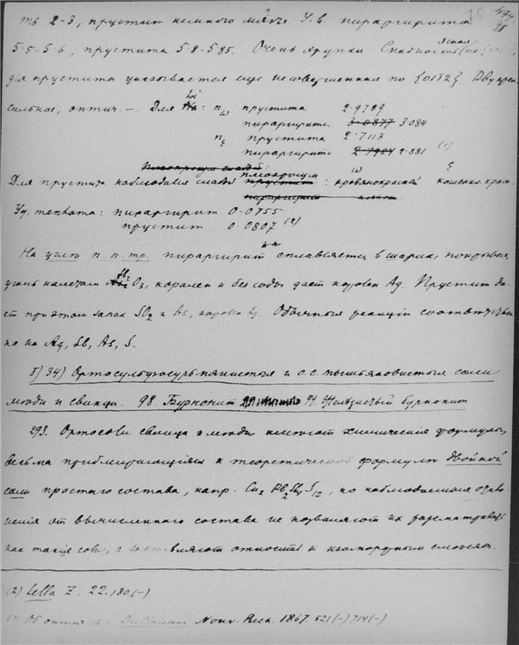 тв 2-3, прустит немного мягче. У.в. пираргирита
5.5-5.6, прустита 5.8-5.85. Очень хрупки. Спайность ясная по
для прустита указывается еще несовершенная по {0112} Двупрел.
сильное, оптич. –. Для Li: nω прустита 2.9789
пираргирита 3.084
nε прустита 2.7113
пираргирита 2.881 (1)
Для прустита наблюдался слабый плеохроизм: ω кровянокрасный ε кошениль-крас.
Уд. теплота: пираргирит 0.0755
прустит 0.0807 (2)
На угле п. п. тр. пираргирит сплавляется в шарик, покрывая
уголь налетом Sb2O3, королек и без соды дает королек Ag. Прустит да-
ет при этом запах SO2 и As, королек Ag. Обычные реакции соответствен
но на Ag, Sb, As, S.
5) 34) Ортосульфосурьмянистые и о.с. мышьяковистые соли
меди и свинца. 98 Бурнонит 99. Железистый бурнонит
293. Ортосоли свинца и меди имеют химические формулы,
весьма приближающияся к теоретической формуле двойной
соли простого состава, напр. Cu2 Pb2 S12, но наблюдаемыя
от вычисленного состава не позволяют их рассматривать
как такие соли, а заставляют относить к изоморфным смесям.
(2) Sella Z. 22. 180 (-)
(1) Об оптич. Des Cloizeaux Nouv. Rech. 1867. 521 (-) 714 (-)